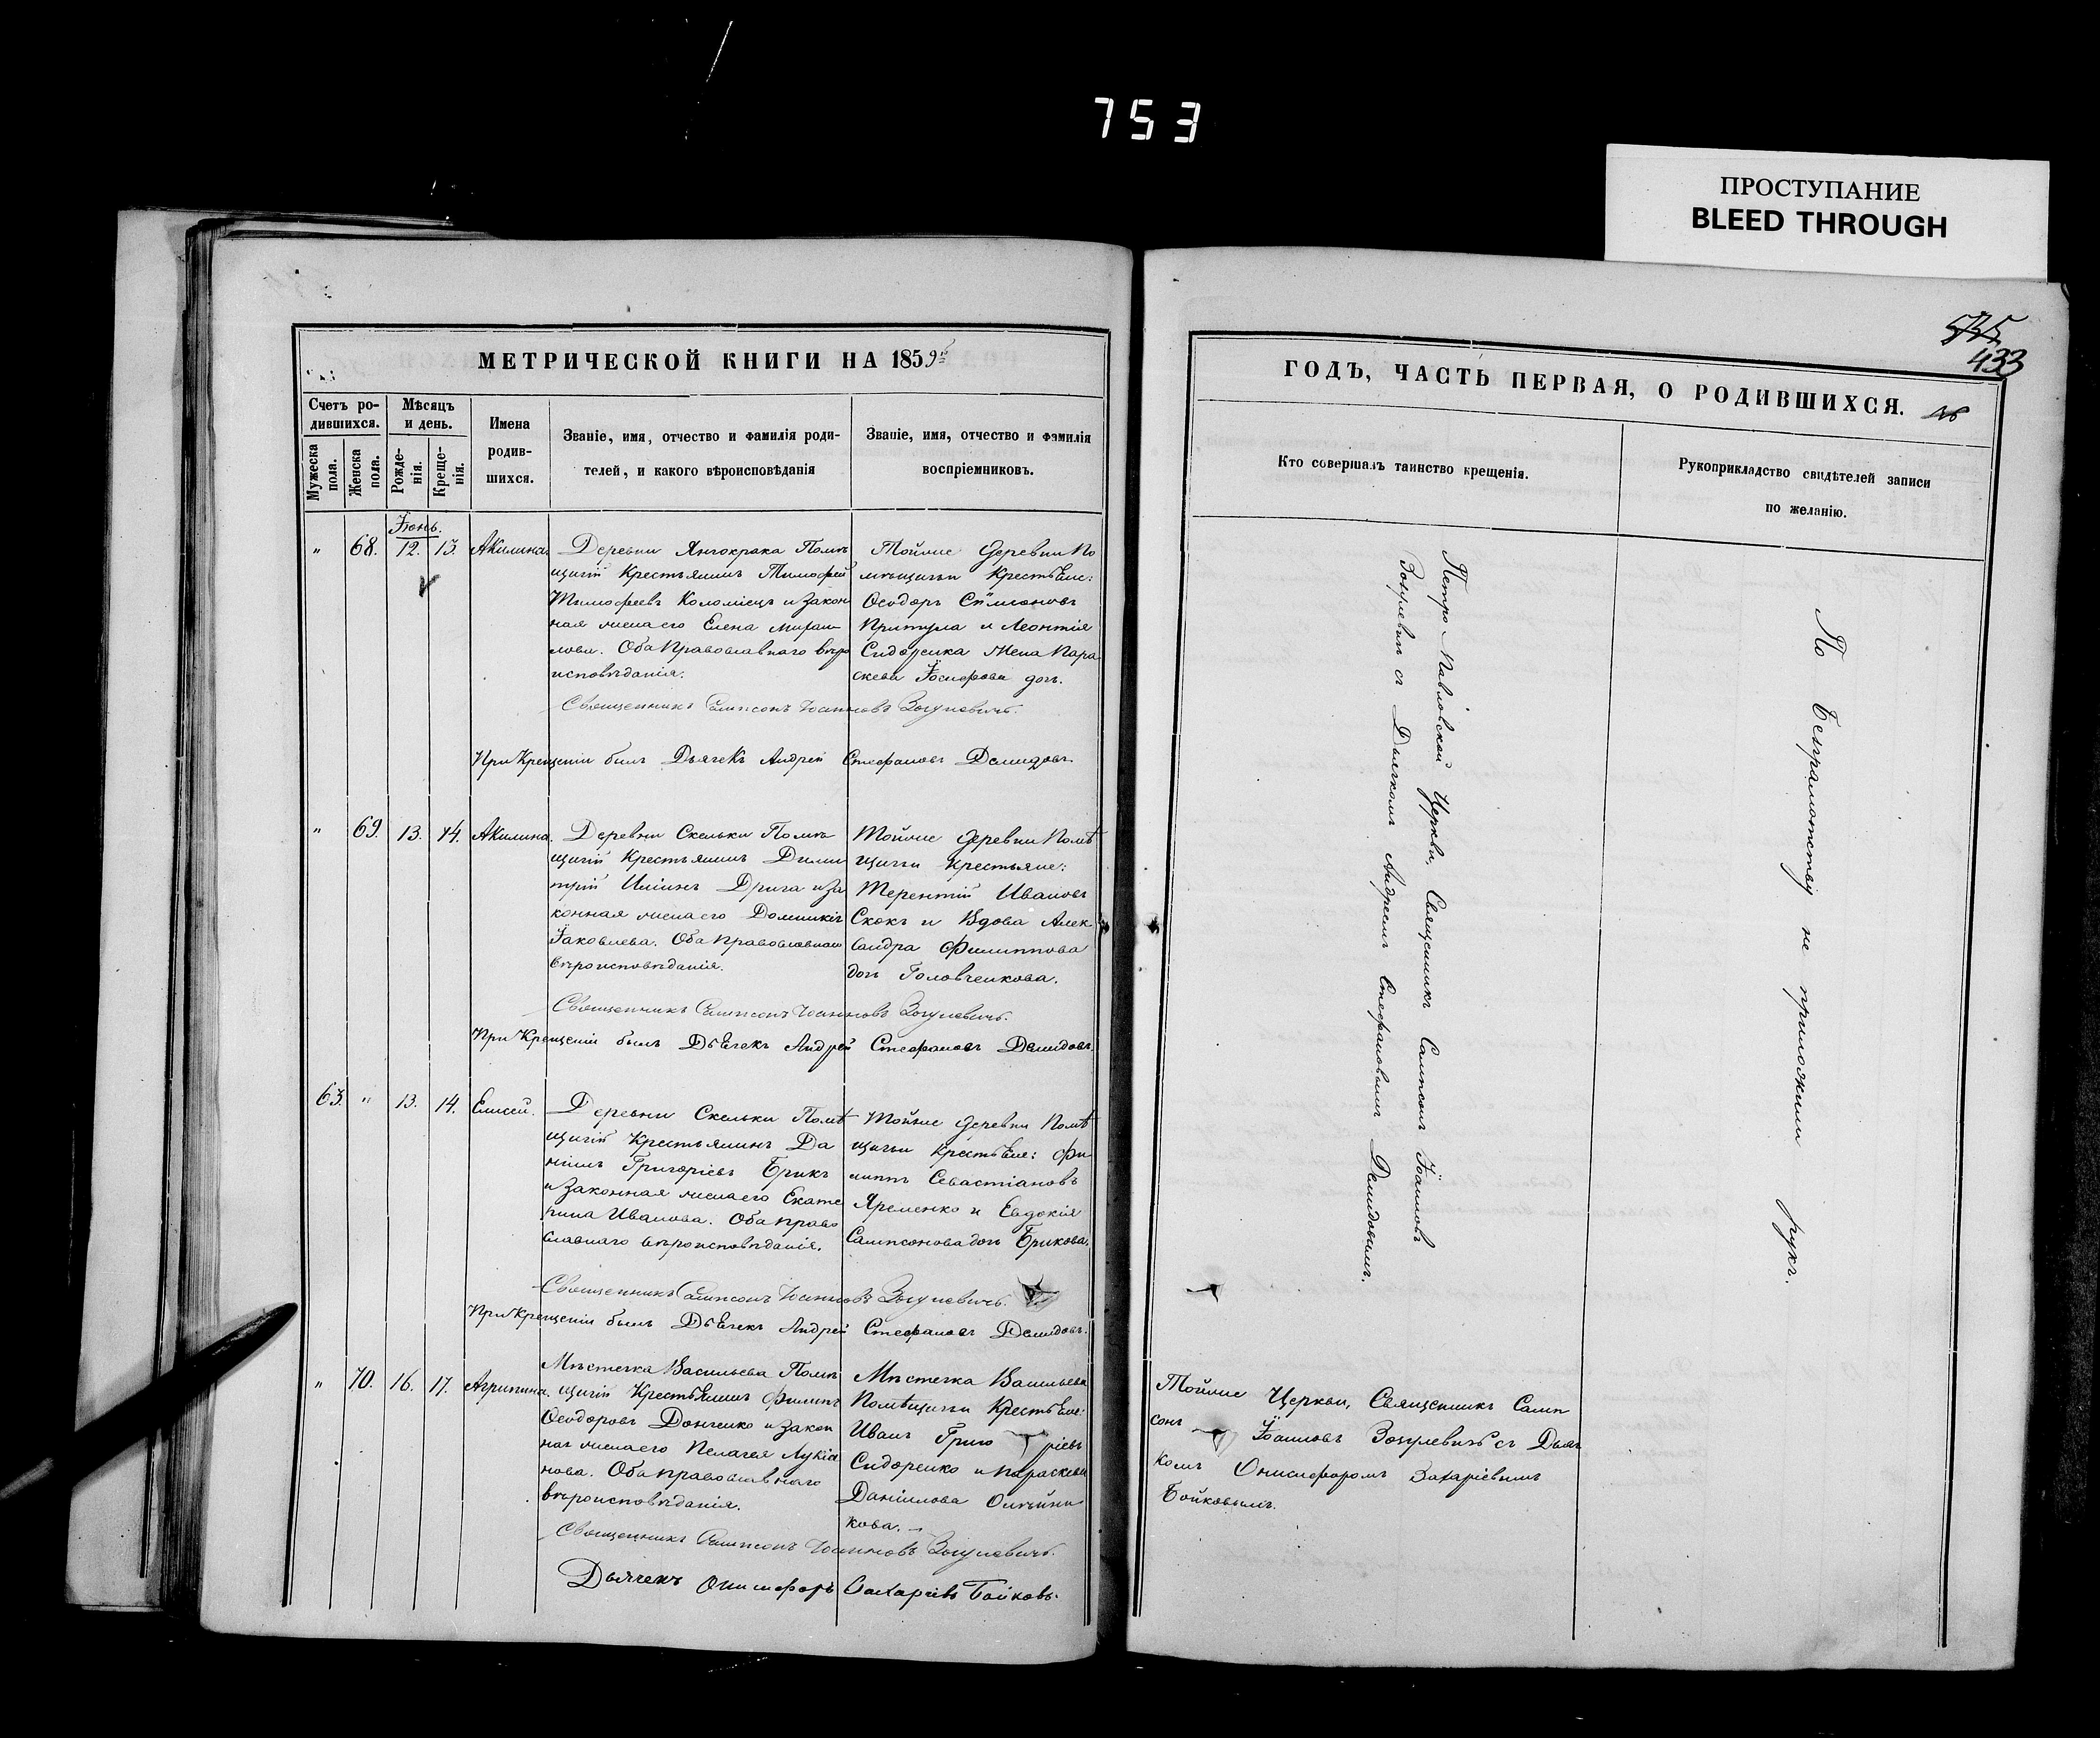 753
ПРОСТУПАНИЕ
BLEED THROUGH
535
433
МЕТРИЧЕСКОЙ КНИГИ НА 1859й
Счетъ ро-
дившихся.
Мужеска
пола.
Женска
пола.
Мѣсяцъ
и день.
Рожде-
нія.
Креще-
нія.
Имена
родив-
шихся.
Званіе, имя, отчество и фамилія роди-
телей, и какого вѣроисповѣданія
Званіе, имя, отчество и фамилія
воспріемниковъ.
Іюнь.
" 68. 12. 13. Акилина.
Деревни Янчокрака Помѣ
щичій Крестьянинъ Тимофей
Тимофеевъ Коломіецъ и закон
ная жена его Елена
Оба Православнаго вѣро
исповѣданія.
Тойже деревни По
мѣщичьи Крестьяне:
Ѳеодоръ Симеоновъ
Притула и Леонтія
Сидоренка жена Пара
скева Іосифова дочь.
Священникъ Сампсонъ Іоанновъ Зосулевичъ.
При Крещеніи былъ Дьячекъ Андрей Стефановъ Демидовъ.
" 69. 13. 14. Акилина.
Деревни Скельки Помѣ
щичій Крестьянинъ Дими
трій Иліинъ Дрига и за
конная жена его Домникія
Іаковлева. Оба православнаго
вѣроисповѣданія.
Тойже деревни Помѣ
щичьи Крестьяне:
Терентій Ивановъ
Скокъ и Вдова Алек
сандра Филиппова
дочь Головченкова.
Священникъ Сампсонъ Іоанновъ Зосулевичъ.
При Крещеніи былъ Дьячекъ Андрей Стефановъ Демидовъ.
63. " 13. 14. Елисей.
Деревни Скельки Помѣ
щичій Крестьянинъ Да
ніилъ Григоріевъ Брикъ
и законная жена его Екате
рина Иванова. Оба право
славнаго вѣроисповѣданія.
Тойже деревни Помѣ
щичьи Крестьяне: Фи
липпъ Севастіановъ
Яременко и Евдокія
Сампсонова дочь Брикова.
Священникъ Сампсонъ Іоанновъ Зосулевичъ.
При Крещеніи былъ Дьячекъ Андрей Стефановъ Демидовъ.
" 70. 16. 17. Агрипина.
Мѣстечка Васильева Помѣ
щичій Крестьянинъ Филипъ
Ѳеодоровъ Донченко и закон
ная жена его Пелагея Лукіа
нова. Оба православнаго
вѣроисповѣданія.
Мѣстечка Васильева
Помѣщичьи Крестьяне:
Иванъ Григоріевъ
Сидоренко и Параскева
Даніилова Олѣйни
кова.
Священникъ Сампсонъ Іоанновъ Зосулевичъ.
Дьячекъ Онисифоръ Захаріевъ Бойковъ.
ГОДЪ, ЧАСТЬ ПЕРВАЯ, О РОДИВШИХСЯ.
Кто совершалъ таинство крещенія.
Рукоприкладство свидѣтелей записи
по желанію.
Петро Павловской Церкви, Священникъ Сампсонъ Іоанновъ
Зосулевичъ съ Дьячкомъ Андреемъ Стефановымъ Демидовымъ.
По безграмотству не приложили рукъ.
Тойже Церкви, Священникъ Самп
сонъ Іоанновъ Зосулевичъ съ Дьяч
комъ Онисифоромъ Захаріевымъ
Бойковымъ.